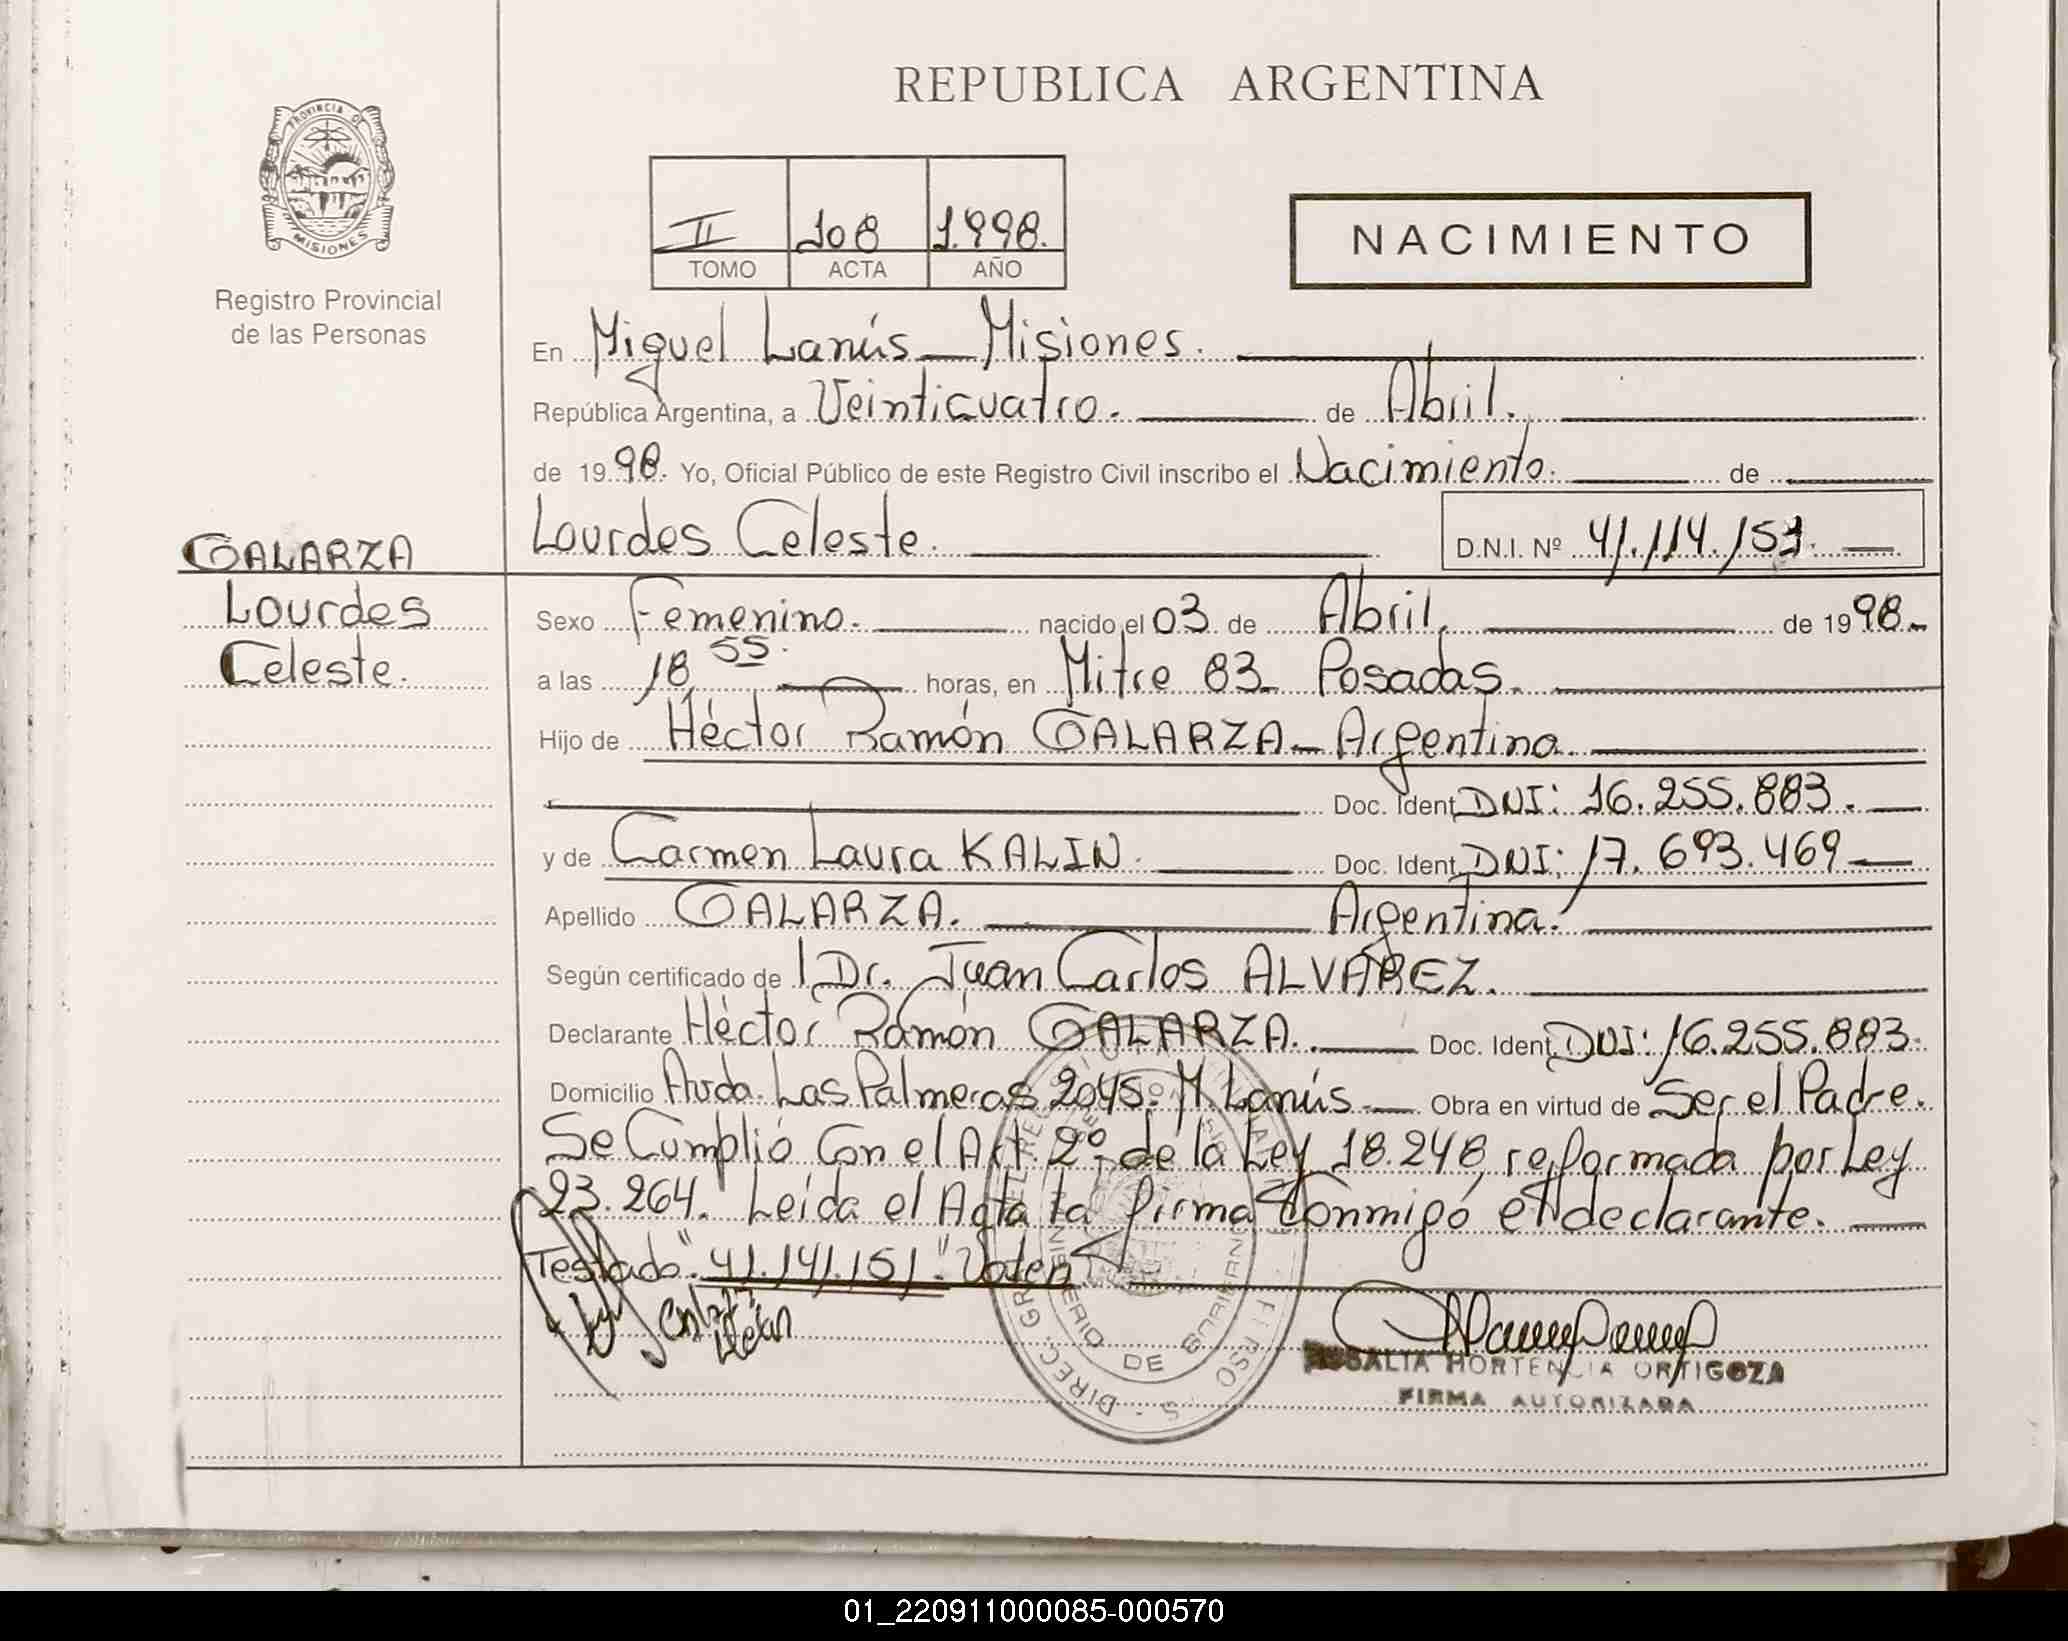 REPUBLICA ARGENTINA
PROVINCIA DE
MISIONES
Registro Provincial
de las Personas
II 108 1.998.
TOMO ACTA AÑO
NACIMIENTO
En Miguel Lanús - Misiones.
República Argentina, a Veinticuatro. de Abril.
de 1998. Yo, Oficial Público de este Registro Civil inscribo el Nacimiento. de
Lourdes Celeste. D.N.I. Nº 41.114.151.
GALARZA
Lourdes
Celeste.
Sexo Femenino. nacido el 03 de Abril. de 1998.
a las 18 55. horas, en Mitre 83 - Posadas.
Hijo de Héctor Ramón GALARZA - Argentino.
Doc. Ident. DNI: 16.255.883.
y de Carmen Laura KALIN. Doc. Ident. DNI: 17.693.469
Apellido GALARZA. Argentina.
Según certificado de l Dr. Juan Carlos ALVAREZ.
Declarante Héctor Ramón GALARZA. Doc. Ident. DNI: 16.255.883.
Domicilio Avda. Las Palmeras 2045. M. Lanús - Obra en virtud de Ser el Padre.
Se Cumplió Con el Art. 2º de la Ley 18.248, reformada por Ley
23.264. Leída el Acta la firma Conmigo el declarante.
Testado "41.141.151"
ROSALIA HORTENCIA ORTIGOZA
FIRMA AUTORIZADA
01_220911000085-000570